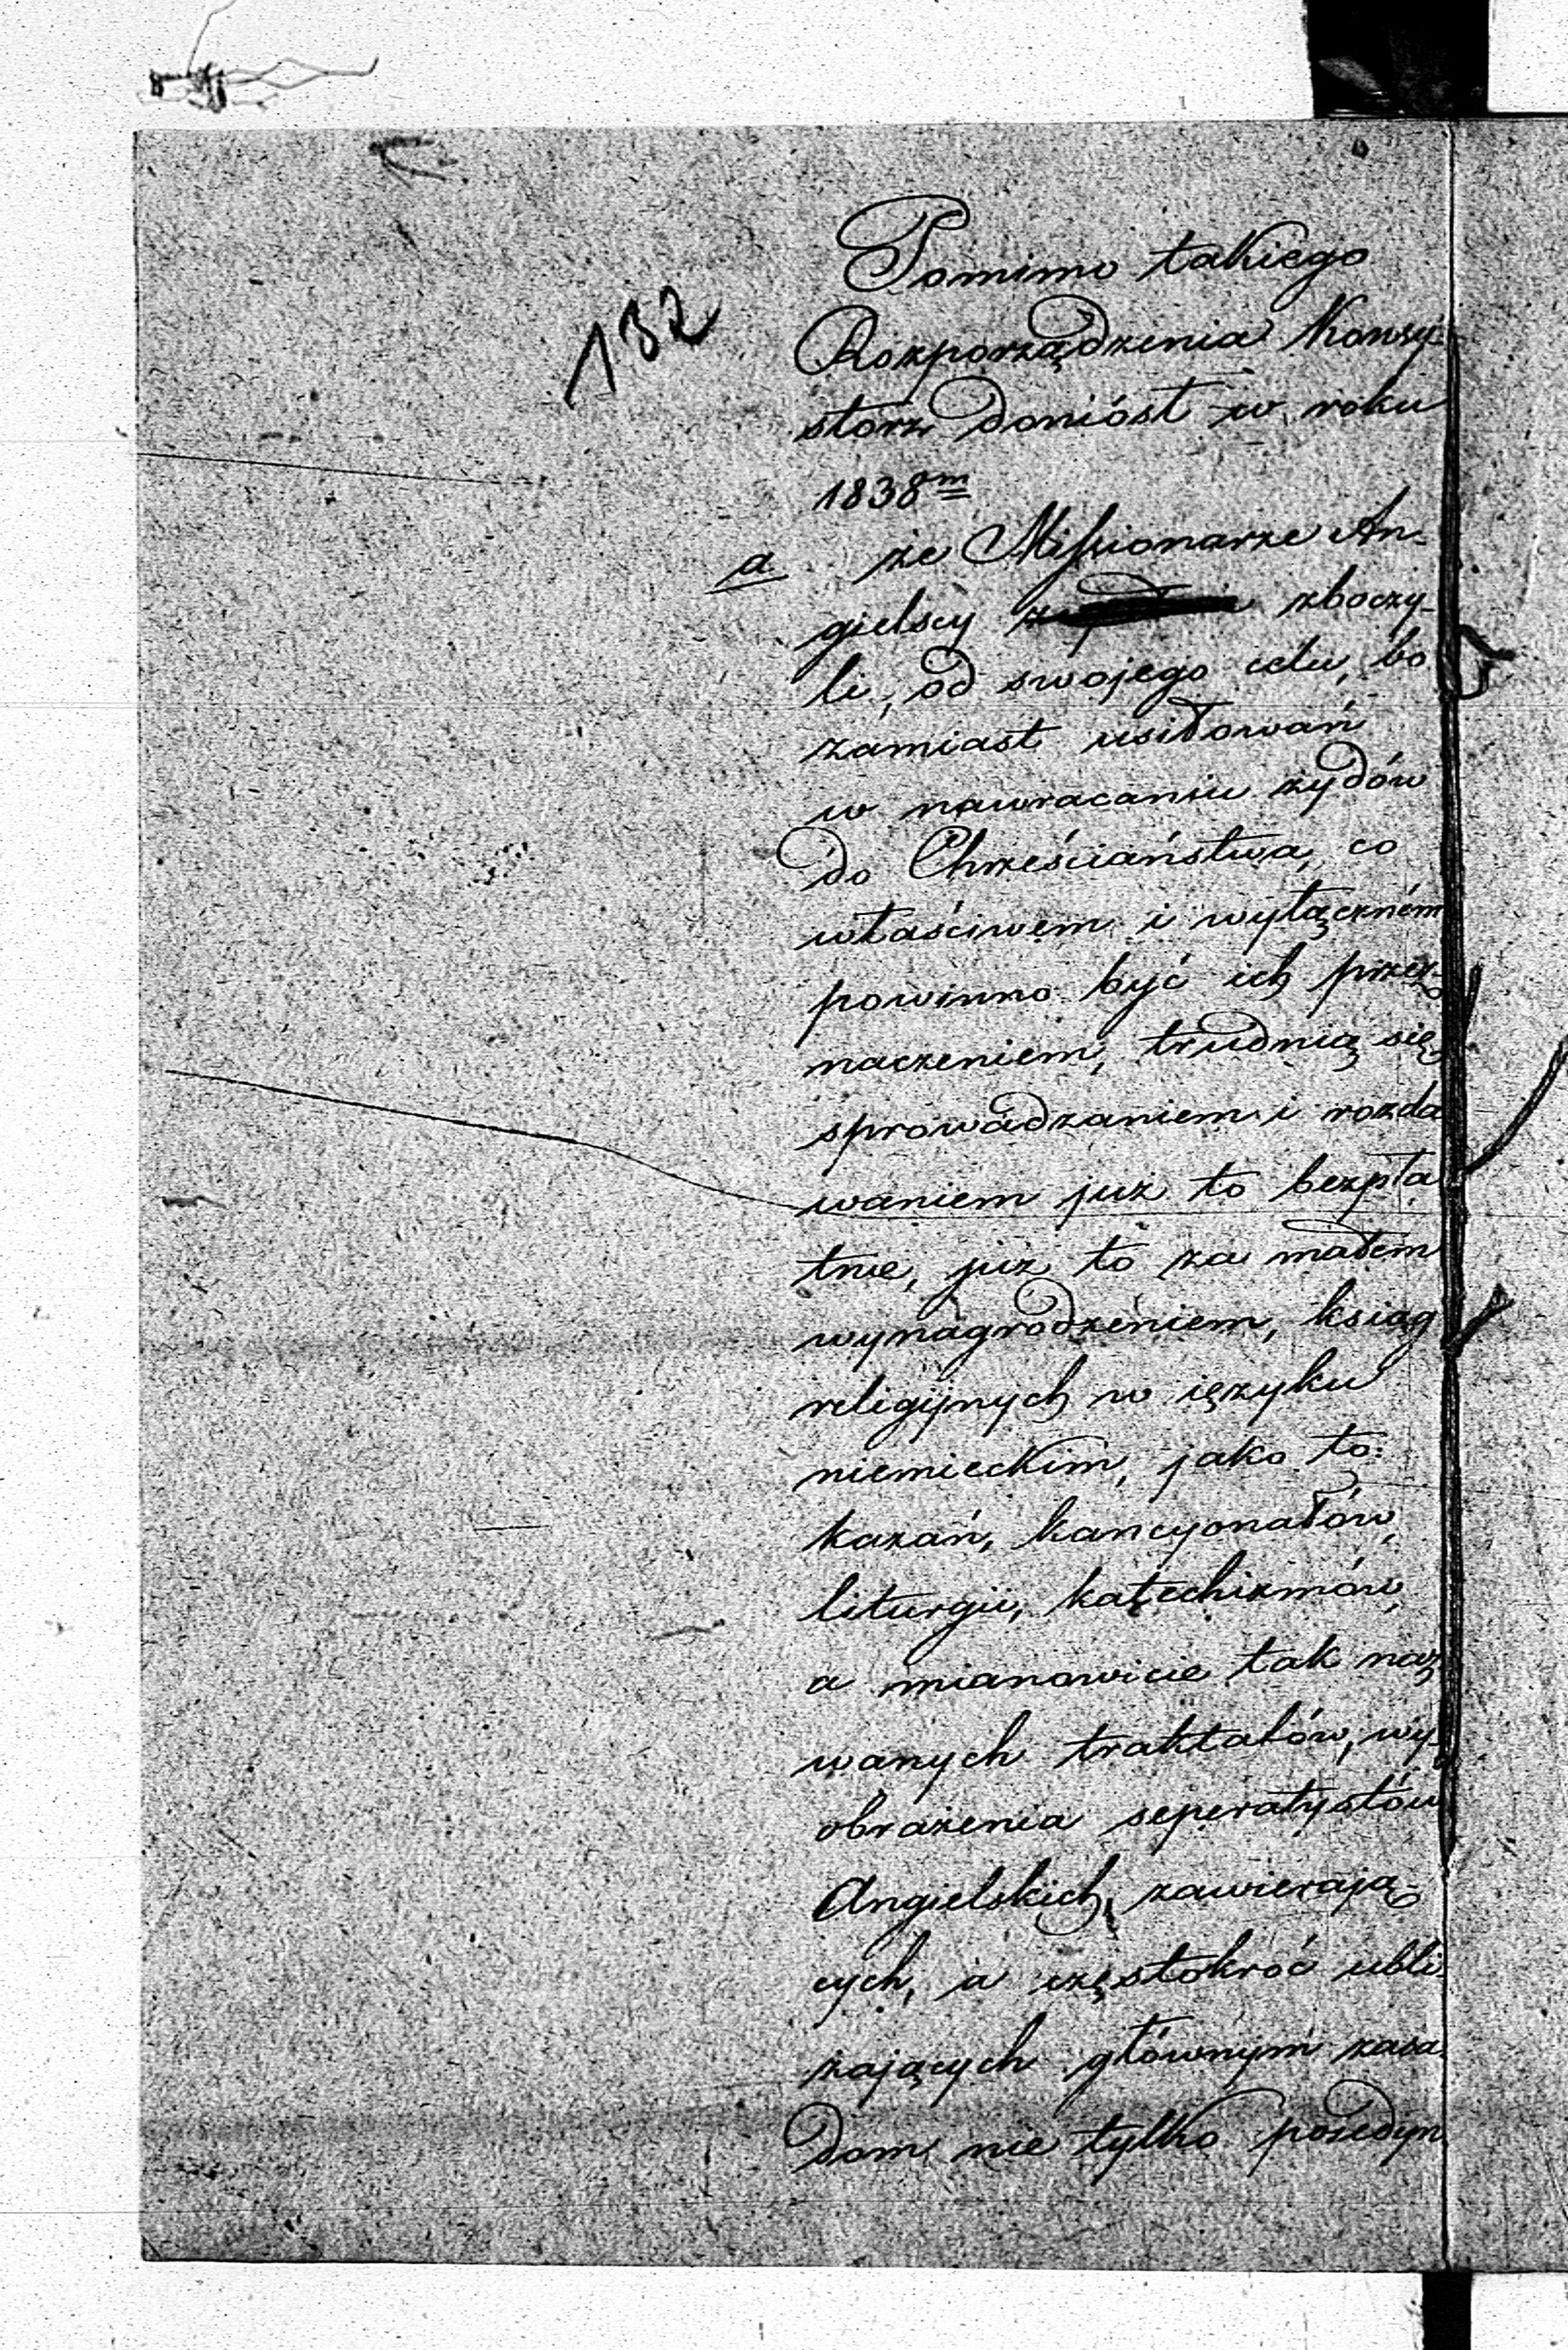 132
Pomimo takiego
Rozporządzenia Konsy-
storz doniósł w roku
1838m
a że Missionarze An-
gielscy zboczy-
li, od swojego celu, bo
zamiast usiłowań
w nawracaniu żydów
do Chrześciaństwa, co
właściwem i wyłączném
powinno być ich prze-
naczeniem, trudnią się
sprowadzaniem i rozda
waniem już to bezpła
tnie, już to za małem
wynagrodzeniem, ksiąg
religijnych w ięzyku
niemieckim, jako to:
kazań, kancyonałów,
liturgii, katechizmów,
a mianowicie tak naz
wanych traktatów, wy-
obrażenia seperatystów
Angielskich, zawierają-
cych, a częstokroć ubli-
żających głównym zasa
dom nie tylko pojedyn